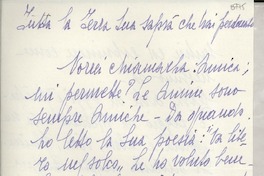 Tutta la Terra Sua saprà che hai perdonato
Vorrei chiamarla: Amica;
mi permette? Le Anime sono
sempre Amiche - Da quando
ho letto la Sua poesia: "Va li
nel solco", Le ho voluto bene